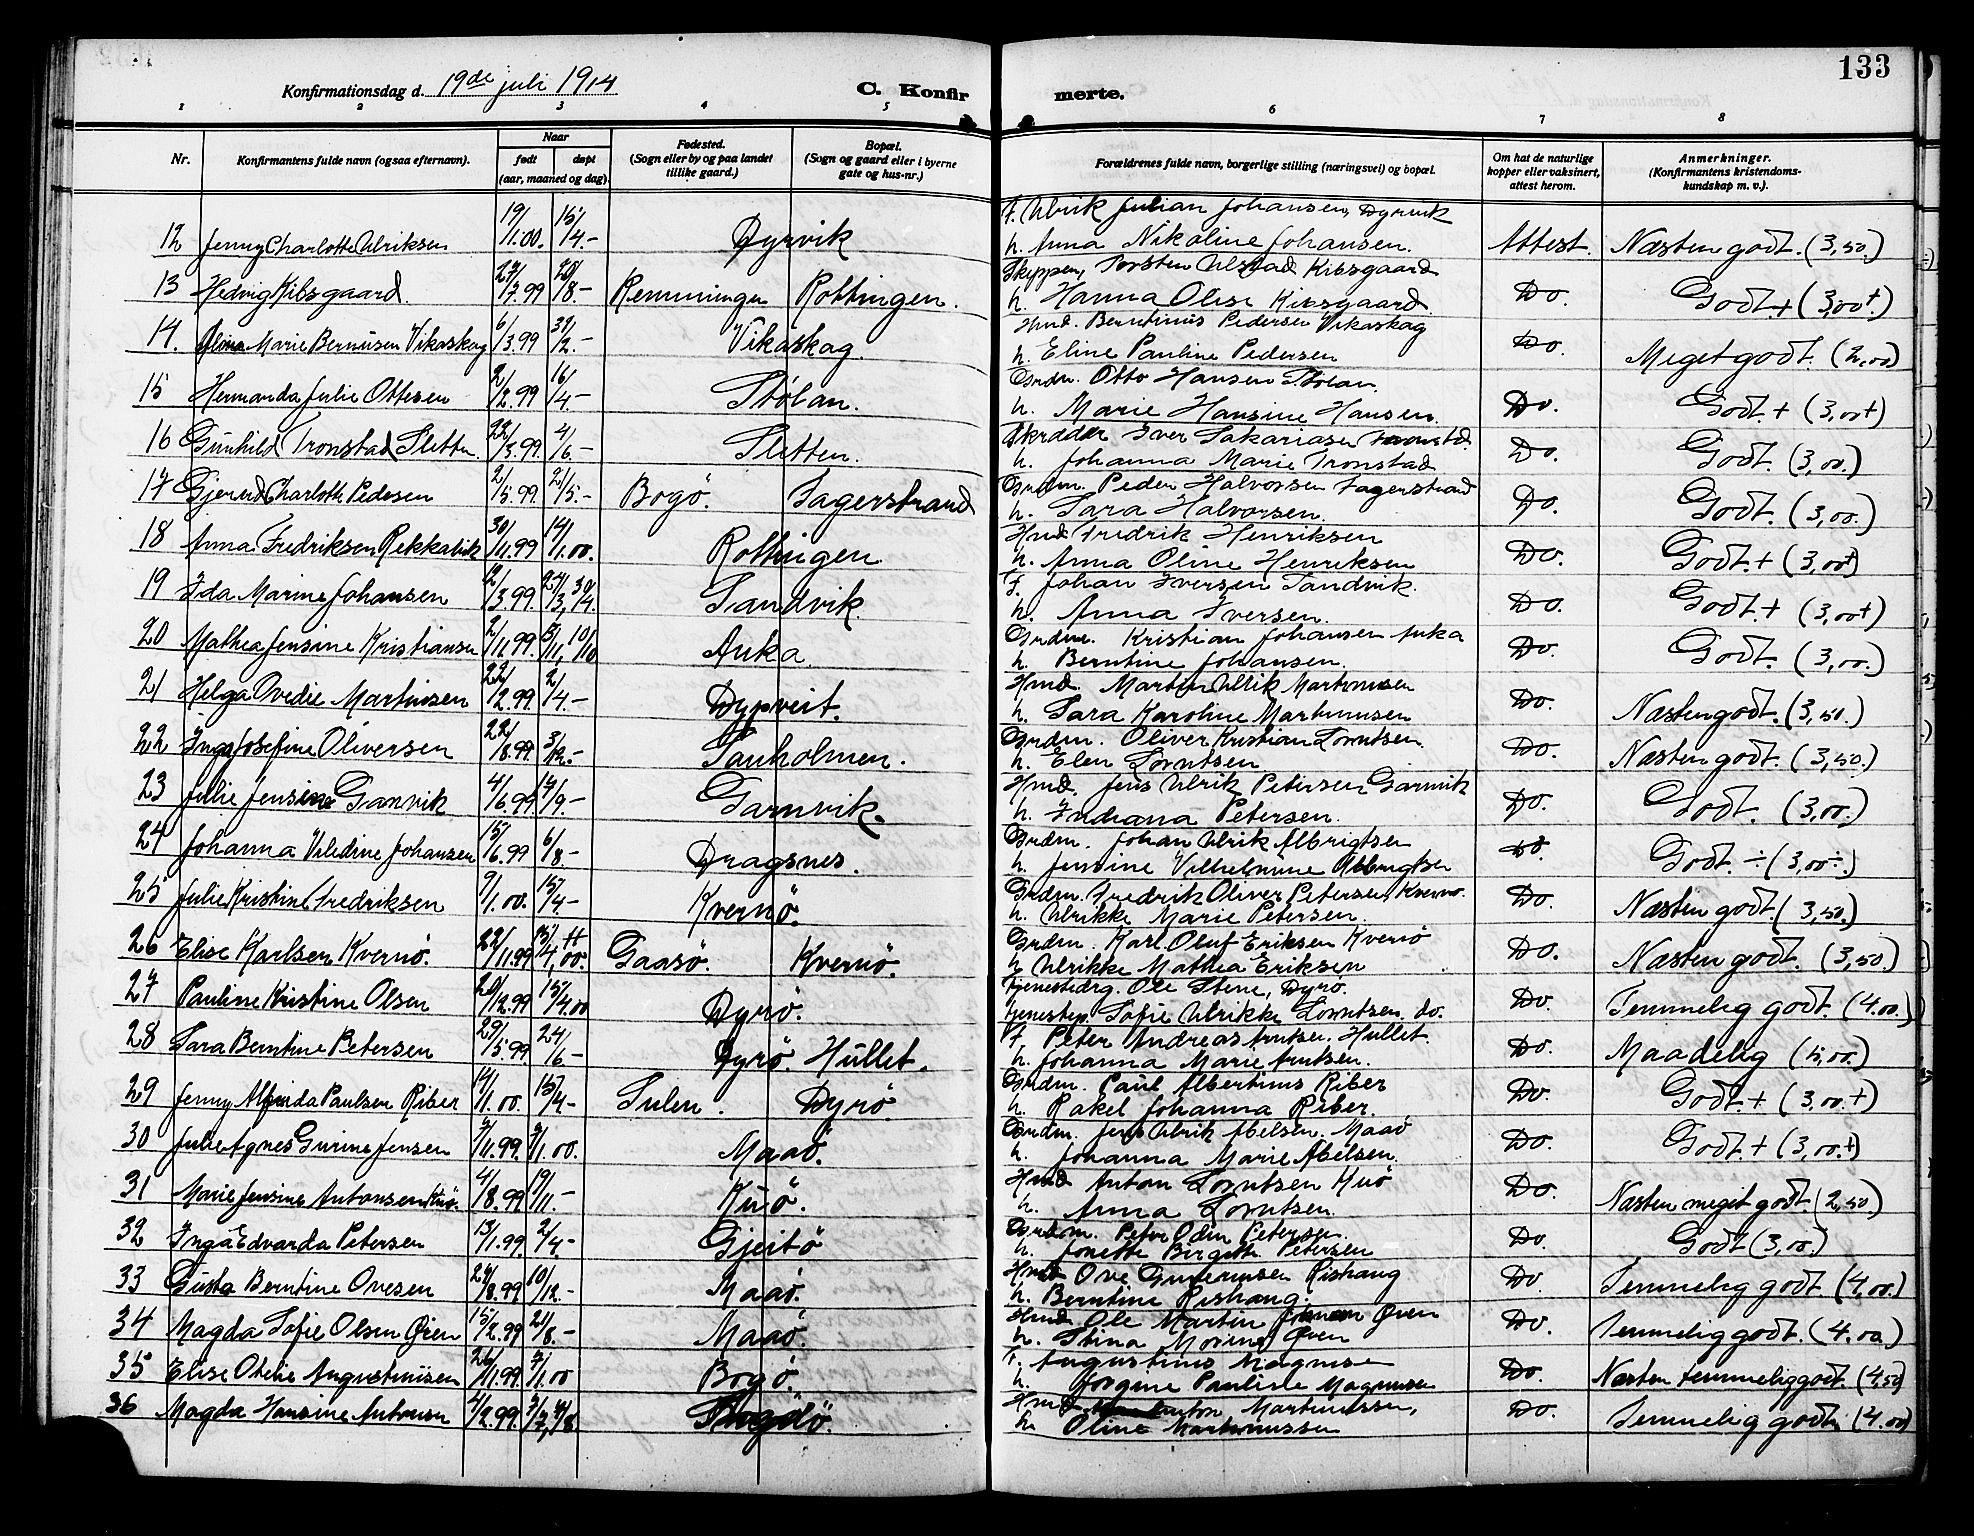 133
Konfirmationsdag d. 19de juli 1914 C. Konfirmerte.
1 2 3 4 5 6 7 8
Nr. Konfirmantens fulde navn (ogsaa efternavn). Naar født døpt (aar, maaned og dag). Fødested. (Sogn eller by og paa landet tillike gaard.) Bopæl. (Sogn og gaard eller i byerne gate og hus-nr.) Forældrenes fulde navn, borgerlige stilling (næringsvei) og bopæl. Om hat de naturlige kopper eller vaksinert, attest herom. Anmerkninger. (Konfirmantens kristendoms-kundskap m. v.).
F. Ulrik Julian Johansen, Dyrvik
12 Jenny Charlotte Ulriksen 19/1.00. 15/4.- Dyrvik h. Anna Nikoline Johansen. Attest. Næsten godt. (3,50.)
Skipper, Torsten Ulstad Kibsgaard
13 Hedvig Kibsgaard. 27/7.99 20/8.- Remmingen Rottingen. h. Hanna Olise Kibsgaard. Do. Godt+ (3,00+)
Hmd. Berntinus Pedersen Vikaskag
14. Marie Berntsen Vikaskag 6/3.99 Vikaskag. h. Eline Pauline Pedersen Do. Meget godt. (2,00)
Grdm. Otto Hansen Stølan.
15 Hermanda Julie Ottesen 2/2.99 16/4.- Stølan. h. Marie Hansine Hansen. Do. Godt + (3,00+)
Skrædder Iver Sakariasen Tronstad
16 Gunhild Tronstad Sletten 22/3.99 4/6.- Sletten. h. Johanna Marie Tronstad Do. Godt. (3,00.)
Grdm. Peder Halvorsen Fagerstrand
17 Gjererd Charlotte Pedersen 2/5.99. 21/5.- Bogö. Fagerstrand h. Sara Halvorsen. Do. Godt. (3,00.)
Hmd. Fredrik Henriksen
18 Anna Fredriksen Rekkabvik 30/11.99 14/1.00. Rottingen h. Anna Oline Henriksen Do. Godt.+ (3,00+)
F. Johan Iversen Sandvik.
19 Ida Marine Johansen 12/3.99. 27/3, 30/4. Sandvik. h. Anna Iversen. Do. Godt.+ (3,00+)
Grdm. Kristian Johansen Auka
20 Mathea Jensine Kristiansen 2/11.99. Auka. h. Berntine Johansen. Do. Godt. (3,00.)
Hmd. Martin Ulrik Martinussen
21 Helga Ovedie Martinsen 22/2.99 2/4.- Dypveit. h. Sara Karoline Martinussen Do. Næsten godt. (3,50.)
Grdm. Oliver Kristian Lorntsen.
22 Inga Josefine Oliversen 22/8.99 3/12.- Sauholmen. h. Elen Lorntsen Do. Næsten godt. (3,50.)
Hmd. Jens Ulrik Petersen Garnvik
23 Julie Jensine Ganvik 4/6.99 17/9.- Garnvik. h. Indiana Petersen. Do. Godt. (3,00.)
Grdm. Johan Ulrik Albrigtsen
24 Johanna Viledine Johansen 15/6.99 6/8.- Dragsnes. h. Jensine Vilhelmine Albrigtsen Do. Godt. ÷ (3,00÷.)
Grdm. Fredrik Oliver Petersen, Kvernø.
25 Julie Kristine Fredriksen 9/1.00. 15/4.- Kvernö. h. Ulrikke Marie Petersen. Do. Næsten godt. (3,50.)
Grdm. Karl Oluf Eriksen Kvernö
26 Elise Karlsen Kvernö. 22/11.99 15/4,00. Gaasö. Kvernö. h. Ulrikke Mathea Eriksen Do. Næsten godt. (3,50.)
Tjenestedrg. Ole Stene, Dyrø.
27 Pauline Kristine Olsen 20/12.99 15/4.00 Dyrö. tjenestep. Sofie Ulrikke Lorntsen. do. Do. Temmelig godt. (4.00.)
F. Peter Andreas Arntsen. Hullet.
28 Sara Berntine Petersen 29/5.99 24/6.- Dyrö. Hullet. h. Johanna Marie Arntsen. Do. Maadelig (5,00.)
Grdm. Paul Albertinus Riber
29 Jenny Alfinda Paulsen Riber 14/1.00. 15/4- Sulen. Dyrö h. Rakel Johanna Riber. Do. Godt.+ (3,00.+)
Grdm. Jens Ulrik Abelsen. Maaø
30 Julie Agnes Gurine Jensen Maaö. h. Johanna Marie Abelsen. Do. Godt.+ (3,00.+)
Hmd. Anton Lorntsen Kuö
31 Marie Jensine Antonsen Kuö. 4/8.99 19/11.- Kuö. h. Anna Lorntsen. Do. Næsten meget godt. (2,50.)
Grdm. Peter Odin Petersen.
32 Inga Edvarda Petersen 13/1.99. 2/4.- Gjeitö h. Jonette Birgitte Petersen Do. Godt (3,00.)
Hmd Ove Guttermsen Rishaug
33 Gusta Berntine Ovesen 24/8.99 10/12.- Maaö. h. Berntine Rishaug. Do Temmelig godt. (4,00.)
Hmd Ole Martin Øren
34 Magda Sofie Olsen Øren 15/2.99 21/8.- Maaö. h. Stina Øren Do. Temmelig godt. (4.00.)
F. Augustinus Magnusen
35 Elise Otelie Augustinusen 26/11.99. 7/1.00 Bogö. h. Jorgine Pauline Magnusen Do. Næsten temmelig godt. (4,50)
Hmd. Anton Martinussen,
36 Magda Hansine Antonsen h. Oline Martinussen Do. Temmelig godt. (4.00)